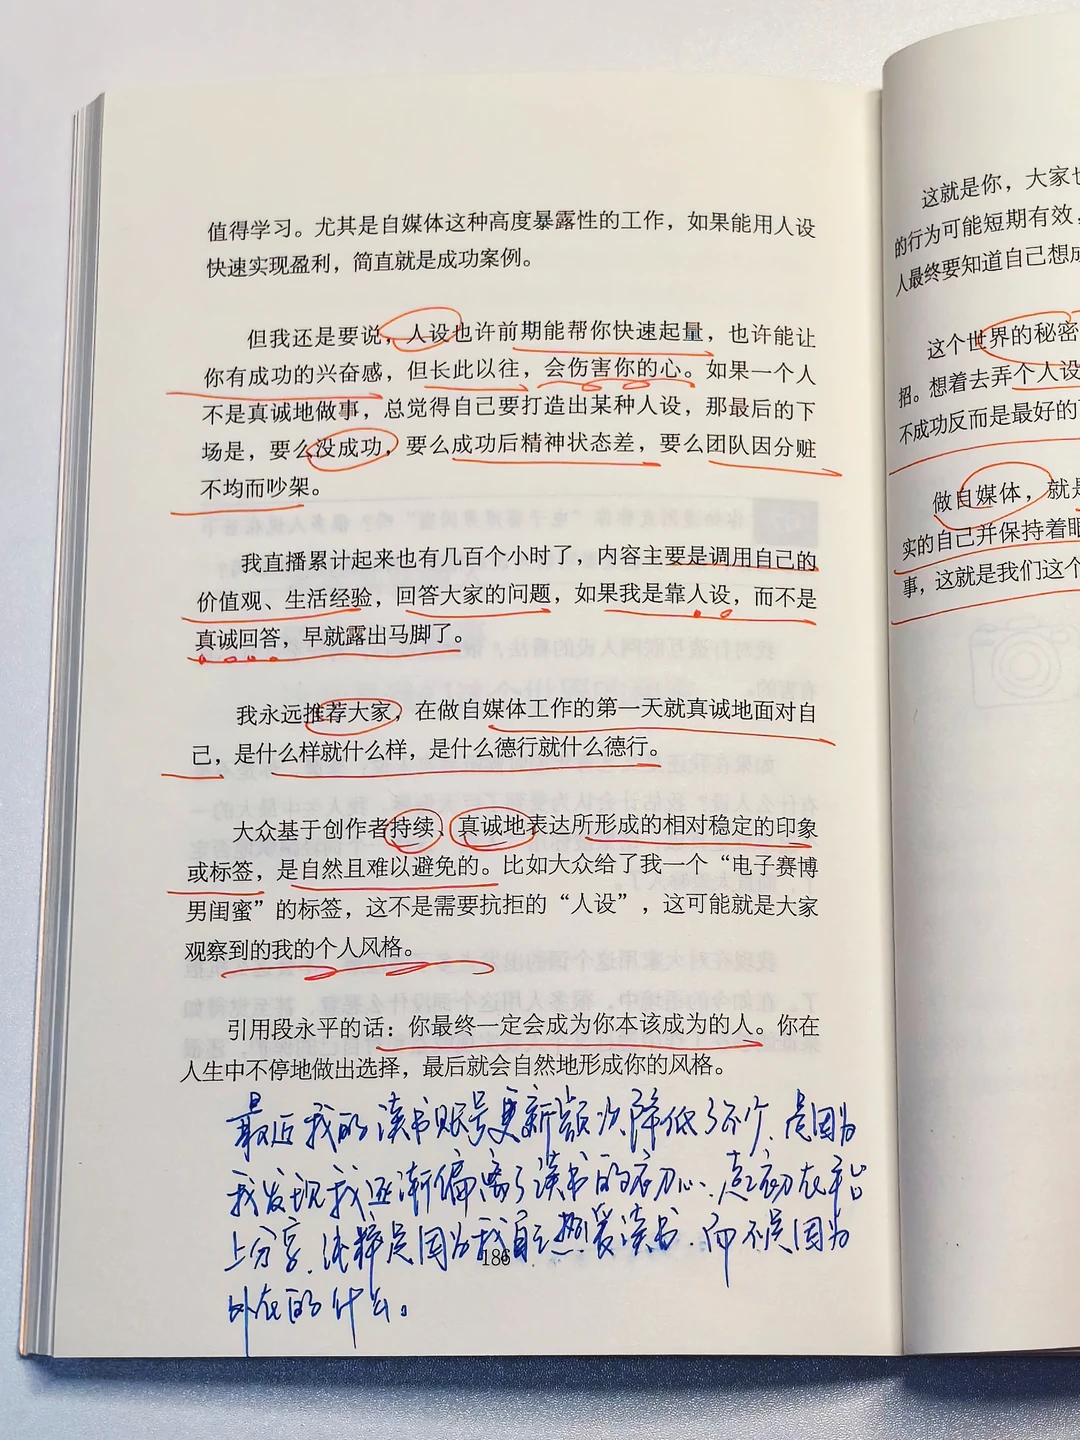 值得学习。尤其是自媒体这种高度暴露性的工作，如果能用人设
快速实现盈利，简直就是成功案例。
但我还是要说，人设也许前期能帮你快速起量，也许能让
你有成功的兴奋感，但长此以往，会伤害你的心。如果一个人
不是真诚地做事，总觉得自己要打造出某种人设，那最后的下
场是，要么没成功，要么成功后精神状态差，要么团队因分赃
不均而吵架。
我直播累计起来也有几百个小时了，内容主要是调用自己的
价值观、生活经验，回答大家的问题，如果我是靠人设，而不是
真诚回答，早就露出马脚了。
我永远推荐大家，在做自媒体工作的第一天就真诚地面对自
己，是什么样就什么样，是什么德行就什么德行。
大众基于创作者持续、真诚地表达所形成的相对稳定的印象
或标签，是自然且难以避免的。比如大众给了我一个“电子赛博
男闺蜜”的标签，这不是需要抗拒的“人设”，这可能就是大家
观察到的我的个人风格。
引用段永平的话：你最终一定会成为你本该成为的人。你在
人生中不停地做出选择，最后就会自然地形成你的风格。
最近我的读书账号更新频次降低了不少，是因为
我发现我逐渐偏离了读书的初心，最初在平台
上分享，纯粹是因为我自己热爱读书，而不是因为
外在的什么。
186
这就是你，大家也
的行为可能短期有效，
人最终要知道自己想成
这个世界的秘密
招。想着去弄个人设
不成功反而是最好的
做自媒体，就是
实的自己并保持着
事，这就是我们这个